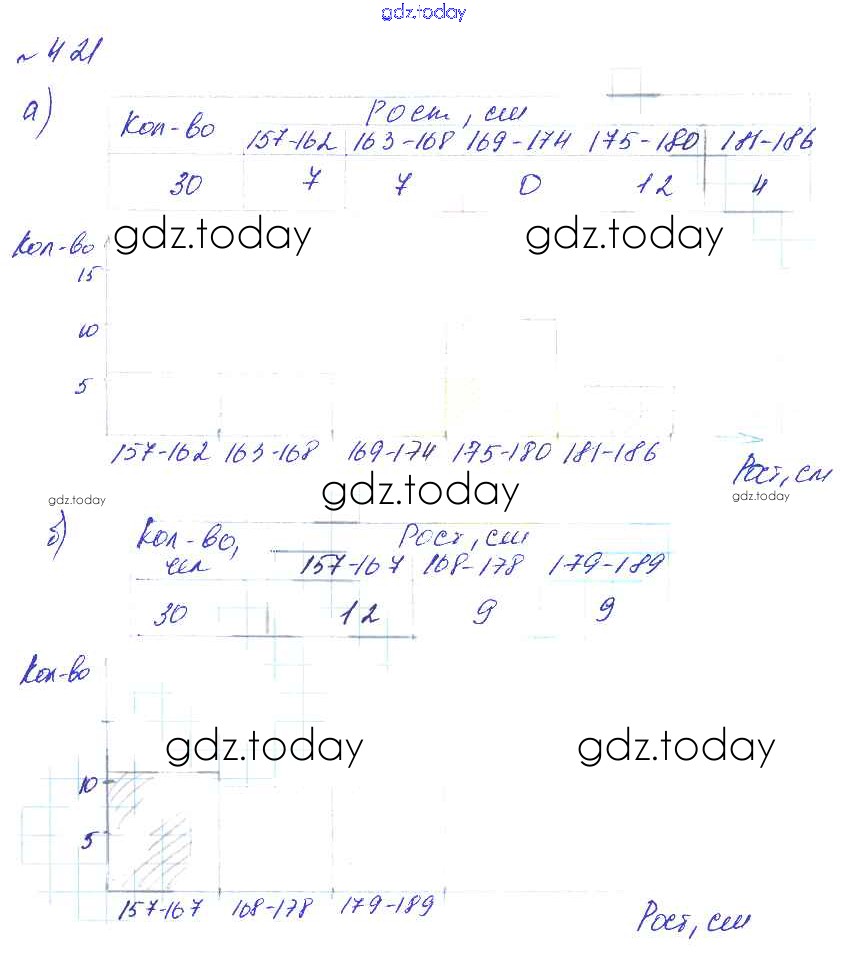 gdz.today
№ 421
а) Кол-во Рост, см
157-162 163-168 169-174 175-180 181-186
30 7 7 0 12 4
Кол-во gdz.today gdz.today
15
10
5
157-162 163-168 169-174 175-180 181-186
Рост, см
gdz.today gdz.today gdz.today
б) Кол-во, Рост, см
чел 157-167 168-178 179-189
30 12 9 9
Кол-во
gdz.today gdz.today
10
5
157-167 168-178 179-189
Рост, см